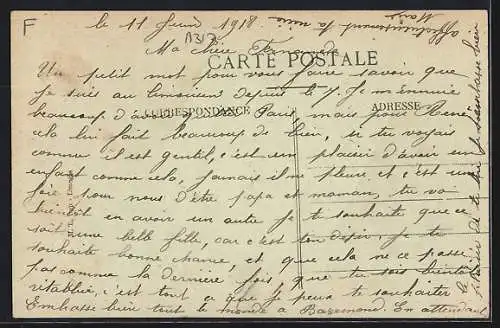 F
le 11 Juin 1918
A317
Ma chère Fernande
CARTE POSTALE
Un petit mot pour vous faire savoir que
je suis au limousin depuis le 7. Je m'ennuie
beaucoup d'avoir Paris, mais pour René
CORRESPONDANCE
ADRESSE
cela lui fait beaucoup de bien, si tu voyais
comme il est gentil, c'est un plaisir d'avoir un
enfant comme cela, jamais il ne pleure et c'est une
joie pour nous d'être papa et maman, tu va
bientôt en avoir un autre je te souhaite que ce
soit une belle fille, car c'est ton désir, je te
souhaite bonne chance, et que cela ne passe
pas comme la dernière fois, que tu sois bientôt
rétablie, c'est tout ce que je peux te souhaiter
Embrasse bien tout le monde à En attendant
le plaisir de te lire je t'embrasse bien
affectueusement ta